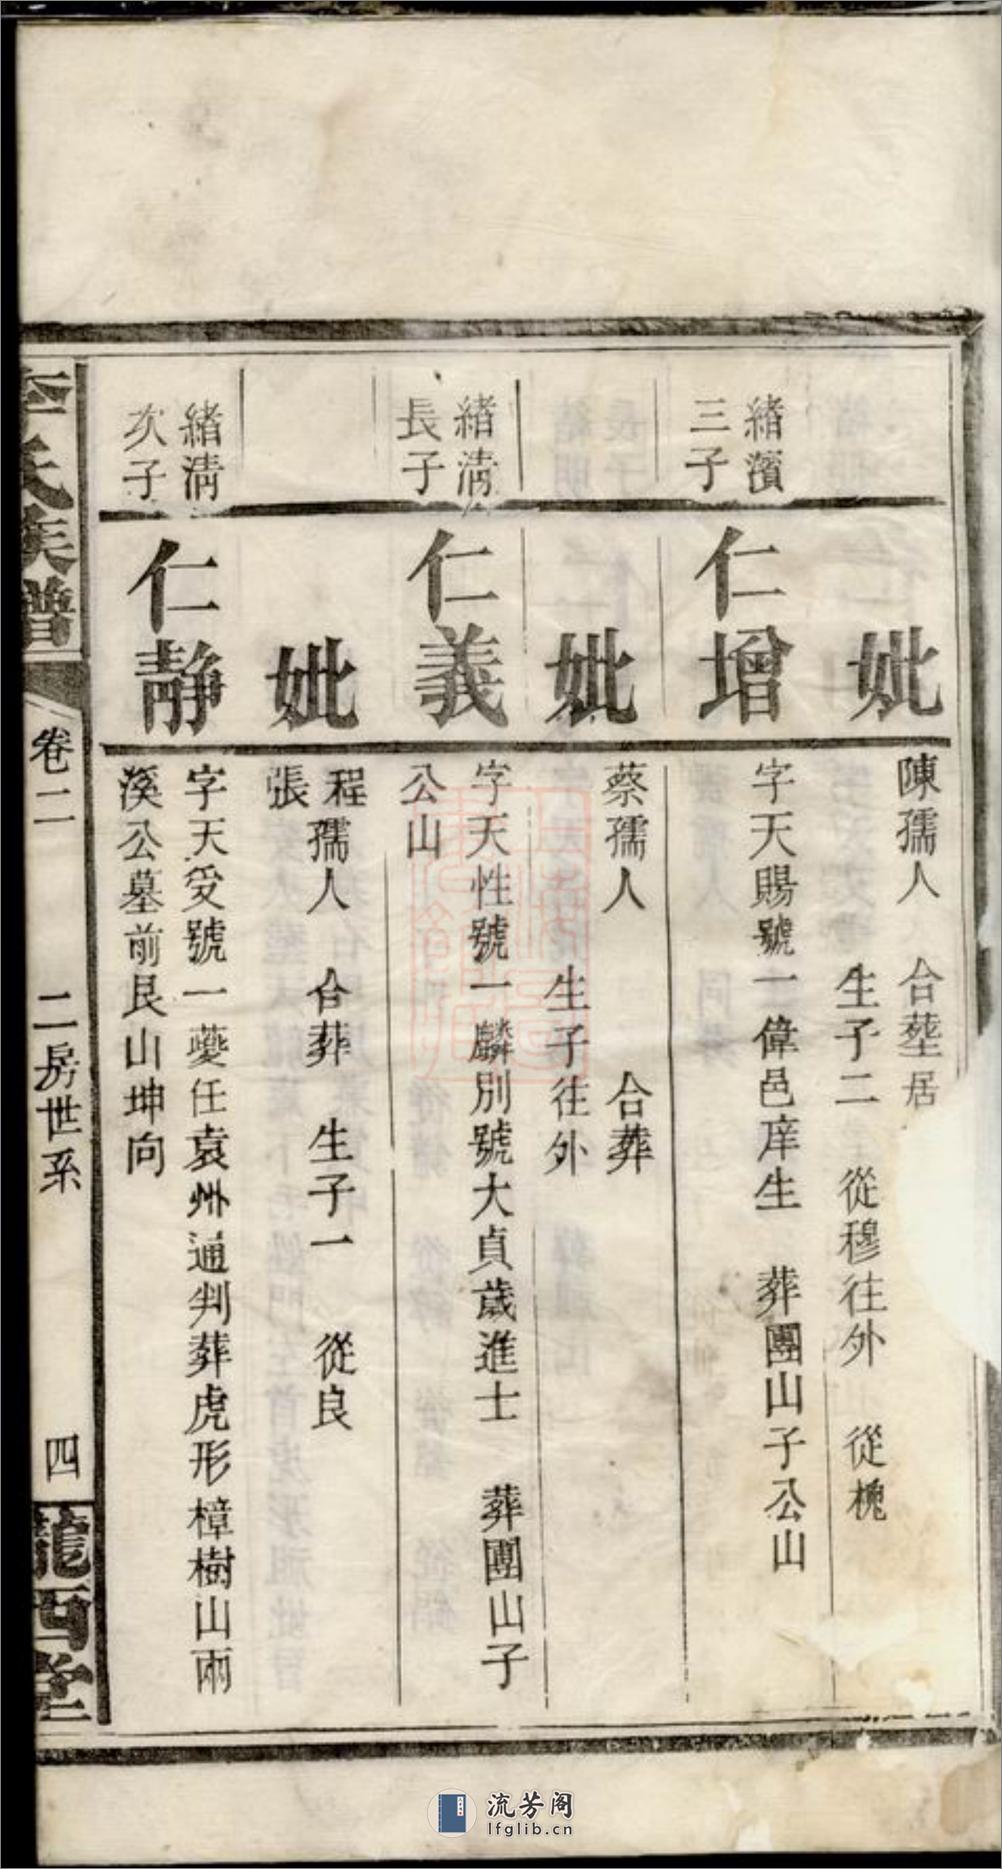 妣
陳孺人　合塟居
生子二　從穆往外　從槐
緒濱
三子
仁增
字天賜號一偉邑庠生　葬團山子公山
妣
蔡孺人　合葬
生子往外
緒淸
長子
仁義
字天性號一麟別號大貞歲進士　葬團山子
公山
妣
程
張
孺人　合葬　生子一　從良
緒淸
次子
仁靜
字天受號一夔任袁州通判葬虎形樟樹山兩
溪公墓前艮山坤向
李氏族譜
卷二
二房世系
四
隴西堂
流芳阁
lfglib.cn